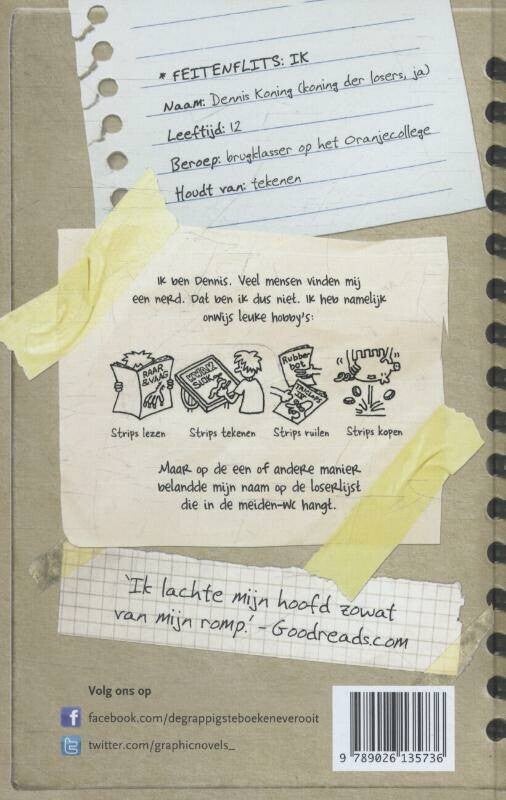 * FEITENFLITS: IK
Naam: Dennis Koning (koning der losers, ja)
Leeftijd: 12
Beroep: brugklasser op het Oranjecollege
Houdt van: tekenen
Ik ben Dennis. Veel mensen vinden mij
een nerd. Dat ben ik dus niet. Ik heb namelijk
onwijs leuke hobby's:
RAAR
&VAAG
Rubber
bot
Strips lezen Strips tekenen Strips ruilen Strips kopen
Maar op de een of andere manier
belandde mijn naam op de loserlijst
die in de meiden-wc hangt.
'Ik lachte mijn hoofd zowat
van mijn romp.' - Goodreads.com
Volg ons op
facebook.com/degrappigsteboekeneverooit
twitter.com/graphicnovels_
9 789026 135736